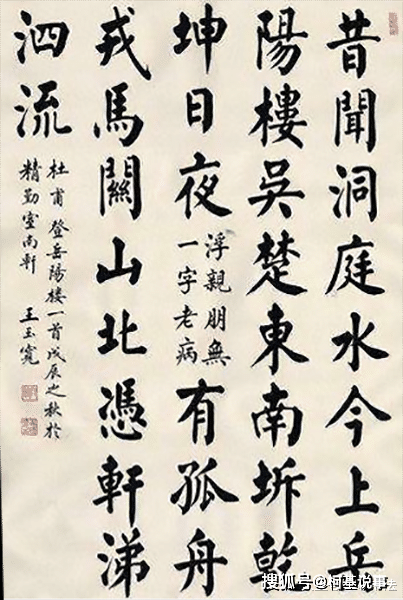 昔聞洞庭水今上岳
陽樓吳楚東南坼乾
坤日夜
浮親朋無
一字老病
有孤舟
戎馬關山北憑軒涕
泗流
杜甫登岳陽楼一首戊辰之秋於
精勤室南軒 王玉寬
搜狐号@柯基说事去